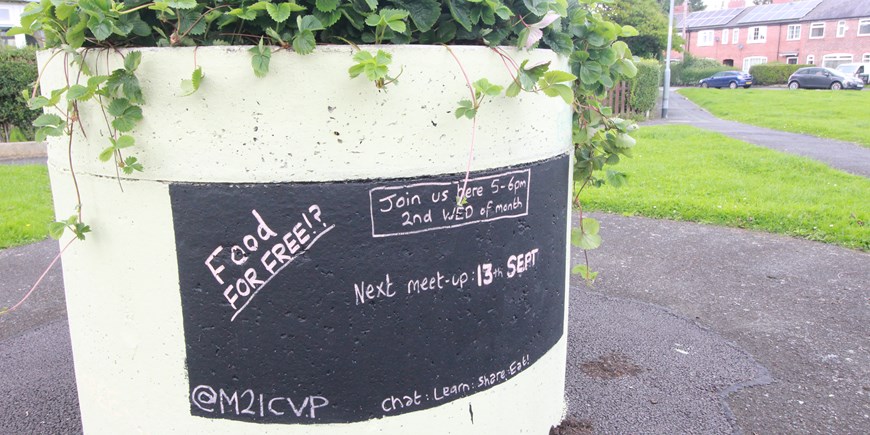 Join us here 5-6pm
2nd WED of month
Food
FOR FREE!?
Next meet-up: 13th SEPT
@M21CVP
chat: Learn: share: Eat!